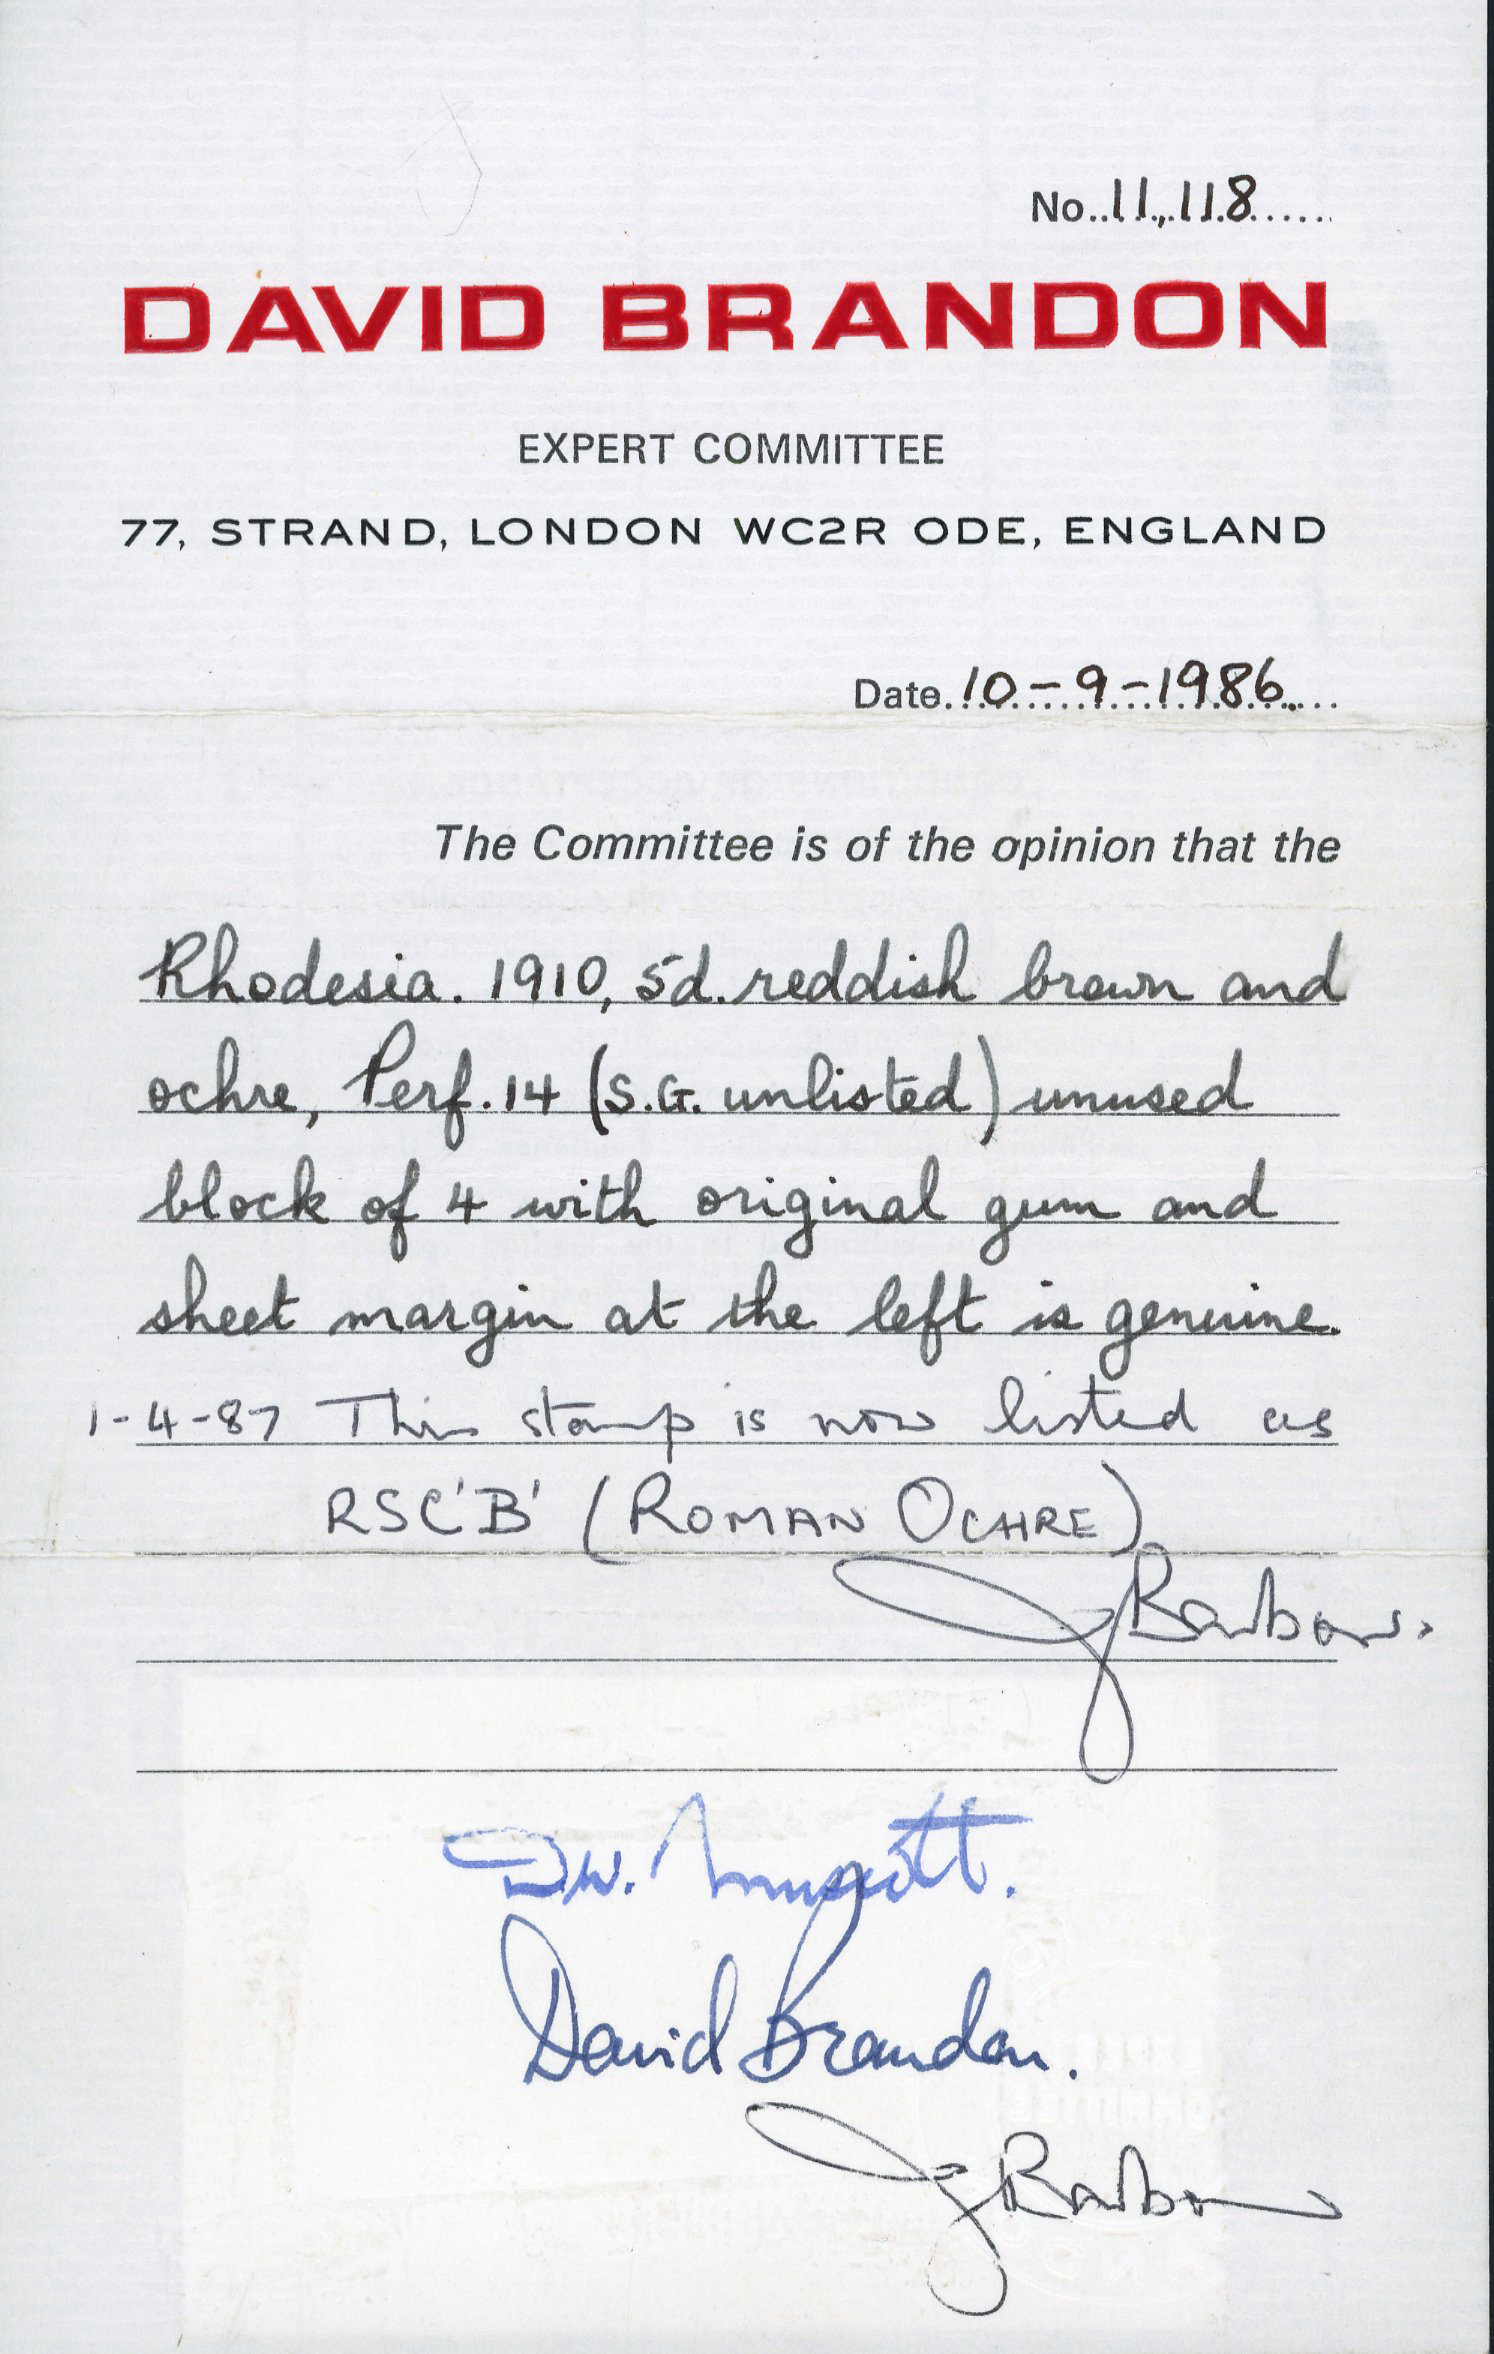 No. 11,118
DAVID BRANDON
EXPERT COMMITTEE
77, STRAND, LONDON WC2R ODE, ENGLAND
Date. 10-9-1986.
The Committee is of the opinion that the
Rhodesia. 1910, 5d. reddish brown and
ochre, Perf. 14 (S.G. unlisted) unused
block of 4 with original gum and
sheet margin at the left is genuine.
1-4-87 This stamp is now listed as
RSC 'B' (ROMAN OCHRE)
David Brandon.